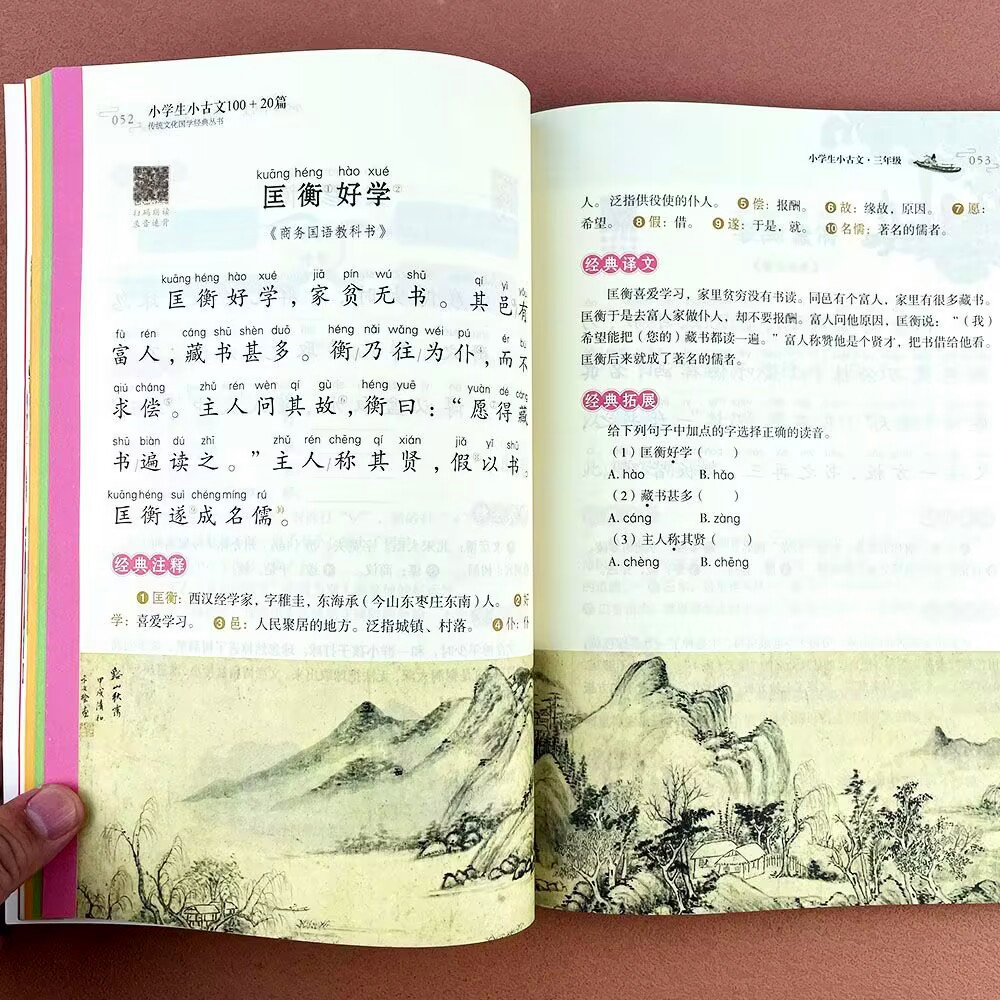 052
小学生小古文100+20篇
传统文化国学经典丛书
扫码朗读
点音速背
kuāng héng hào xué
匡衡①好学②
《商务国语教科书》
kuāng héng hào xué jiā pín wú shū qí yì yǒu
匡衡好学，家贫无书。其邑有
fù rén cáng shū shèn duō héng nǎi wǎng wéi pú ér bù
富人，藏书甚多。衡乃往为仆，而不
qiú cháng zhǔ rén wèn qí gù héng yuē yuàn dé cáng
求偿⑤。主人问其故⑥，衡曰：“愿得藏
shū biàn dú zhī zhǔ rén chēng qí xián jiǎ yǐ shū
书/遍读之。”主人/称其贤，假⑧以书。
kuāng héng suì chéng míng rú
匡衡遂⑨成名儒⑩。
经典注释
①匡衡：西汉经学家，字稚圭，东海承（今山东枣庄东南）人。②好
学：喜爱学习。③邑：人民聚居的地方。泛指城镇、村落。④仆：
小学生小古文·三年级
053
人。泛指供役使的仆人。⑤偿：报酬。⑥故：缘故，原因。⑦愿：
希望。⑧假：借。⑨遂：于是，就。⑩名儒：著名的儒者。
经典译文
匡衡喜爱学习，家里贫穷没有书读。同邑有个富人，家里有很多藏书。
匡衡于是去富人家做仆人，却不要报酬。富人问他原因，匡衡说：“（我）
希望能把（您的）藏书都读一遍。”富人称赞他是个贤才，把书借给他看。
匡衡后来就成了著名的儒者。
经典拓展
给下列句子中加点的字选择正确的读音。
（1）匡衡好学（ ）
A. hào B. hǎo
（2）藏书甚多（ ）
A. cáng B. zàng
（3）主人称其贤（ ）
A. chèng B. chēng